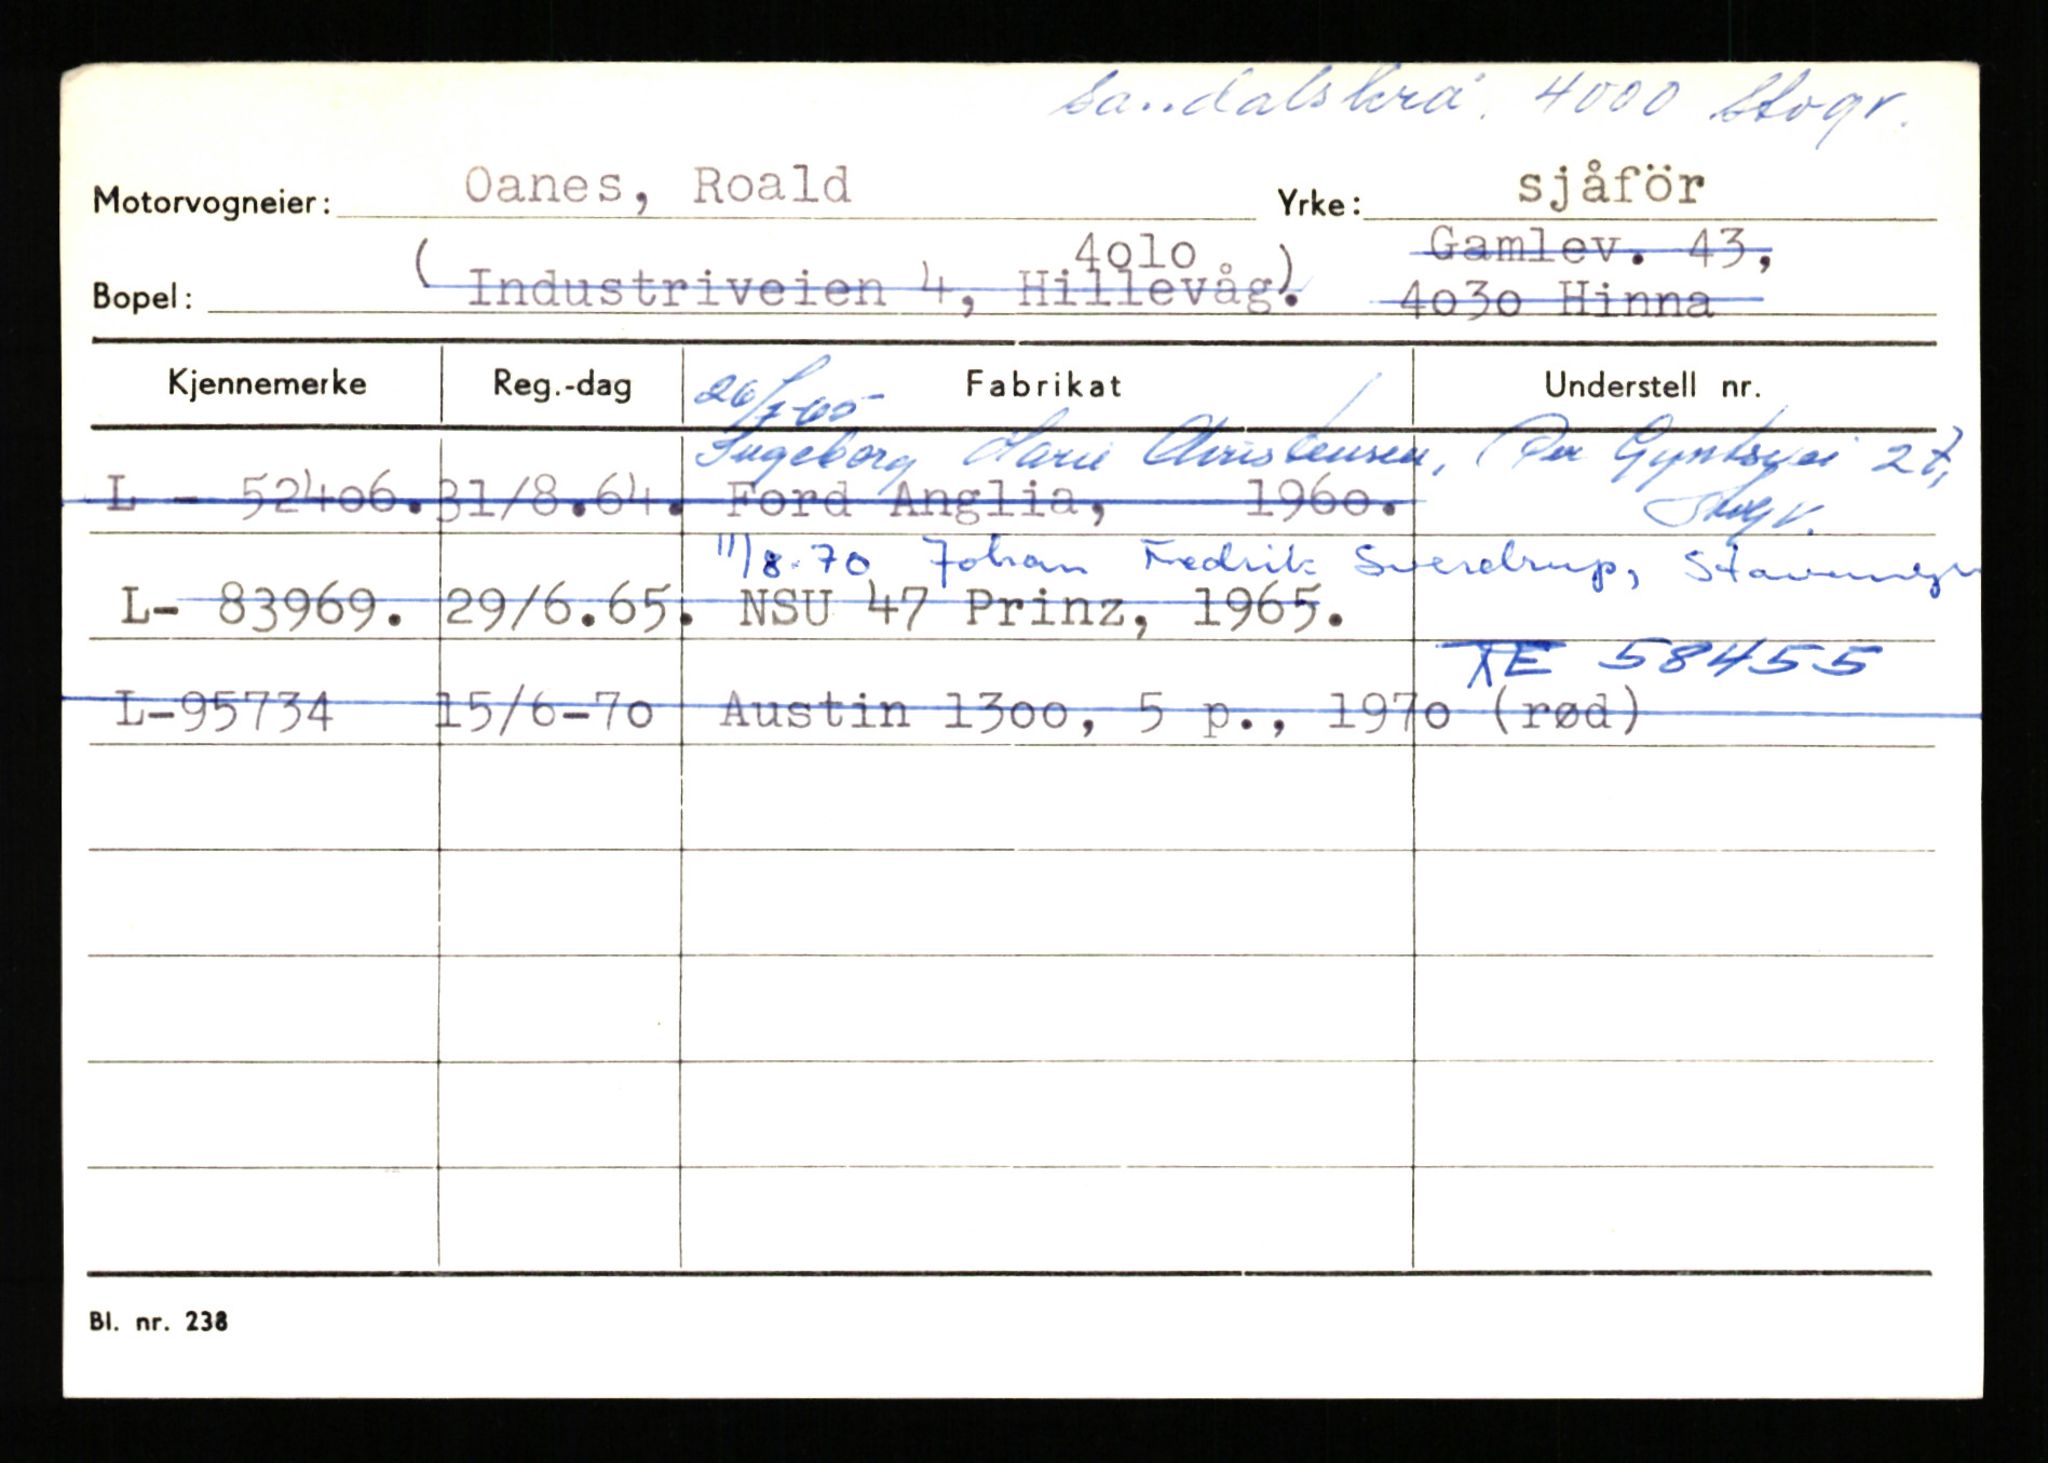 4000 Stvgr.
Motorvogneier: Oanes, Roald Yrke: sjåför
4olo Gamlev. 43,
Bopel: ( Industriveien 4, Hillevåg. ) 4o3o Hinna
Kjennemerke Reg.-dag Fabrikat Understell nr.
Ingeborg Marie Christensen, Per Gyntsvei
L - 524o6. 31/8.64. Ford Anglia, 196o. Stvgr.
11/8.70 Johan Fredrik Sverdrup, Stavanger
L- 83969. 29/6.65. NSU 47 Prinz, 1965.
58455
L-95734 15/6-7o Austin 13oo, 5 p., 197o (rød)
Bl. nr. 238